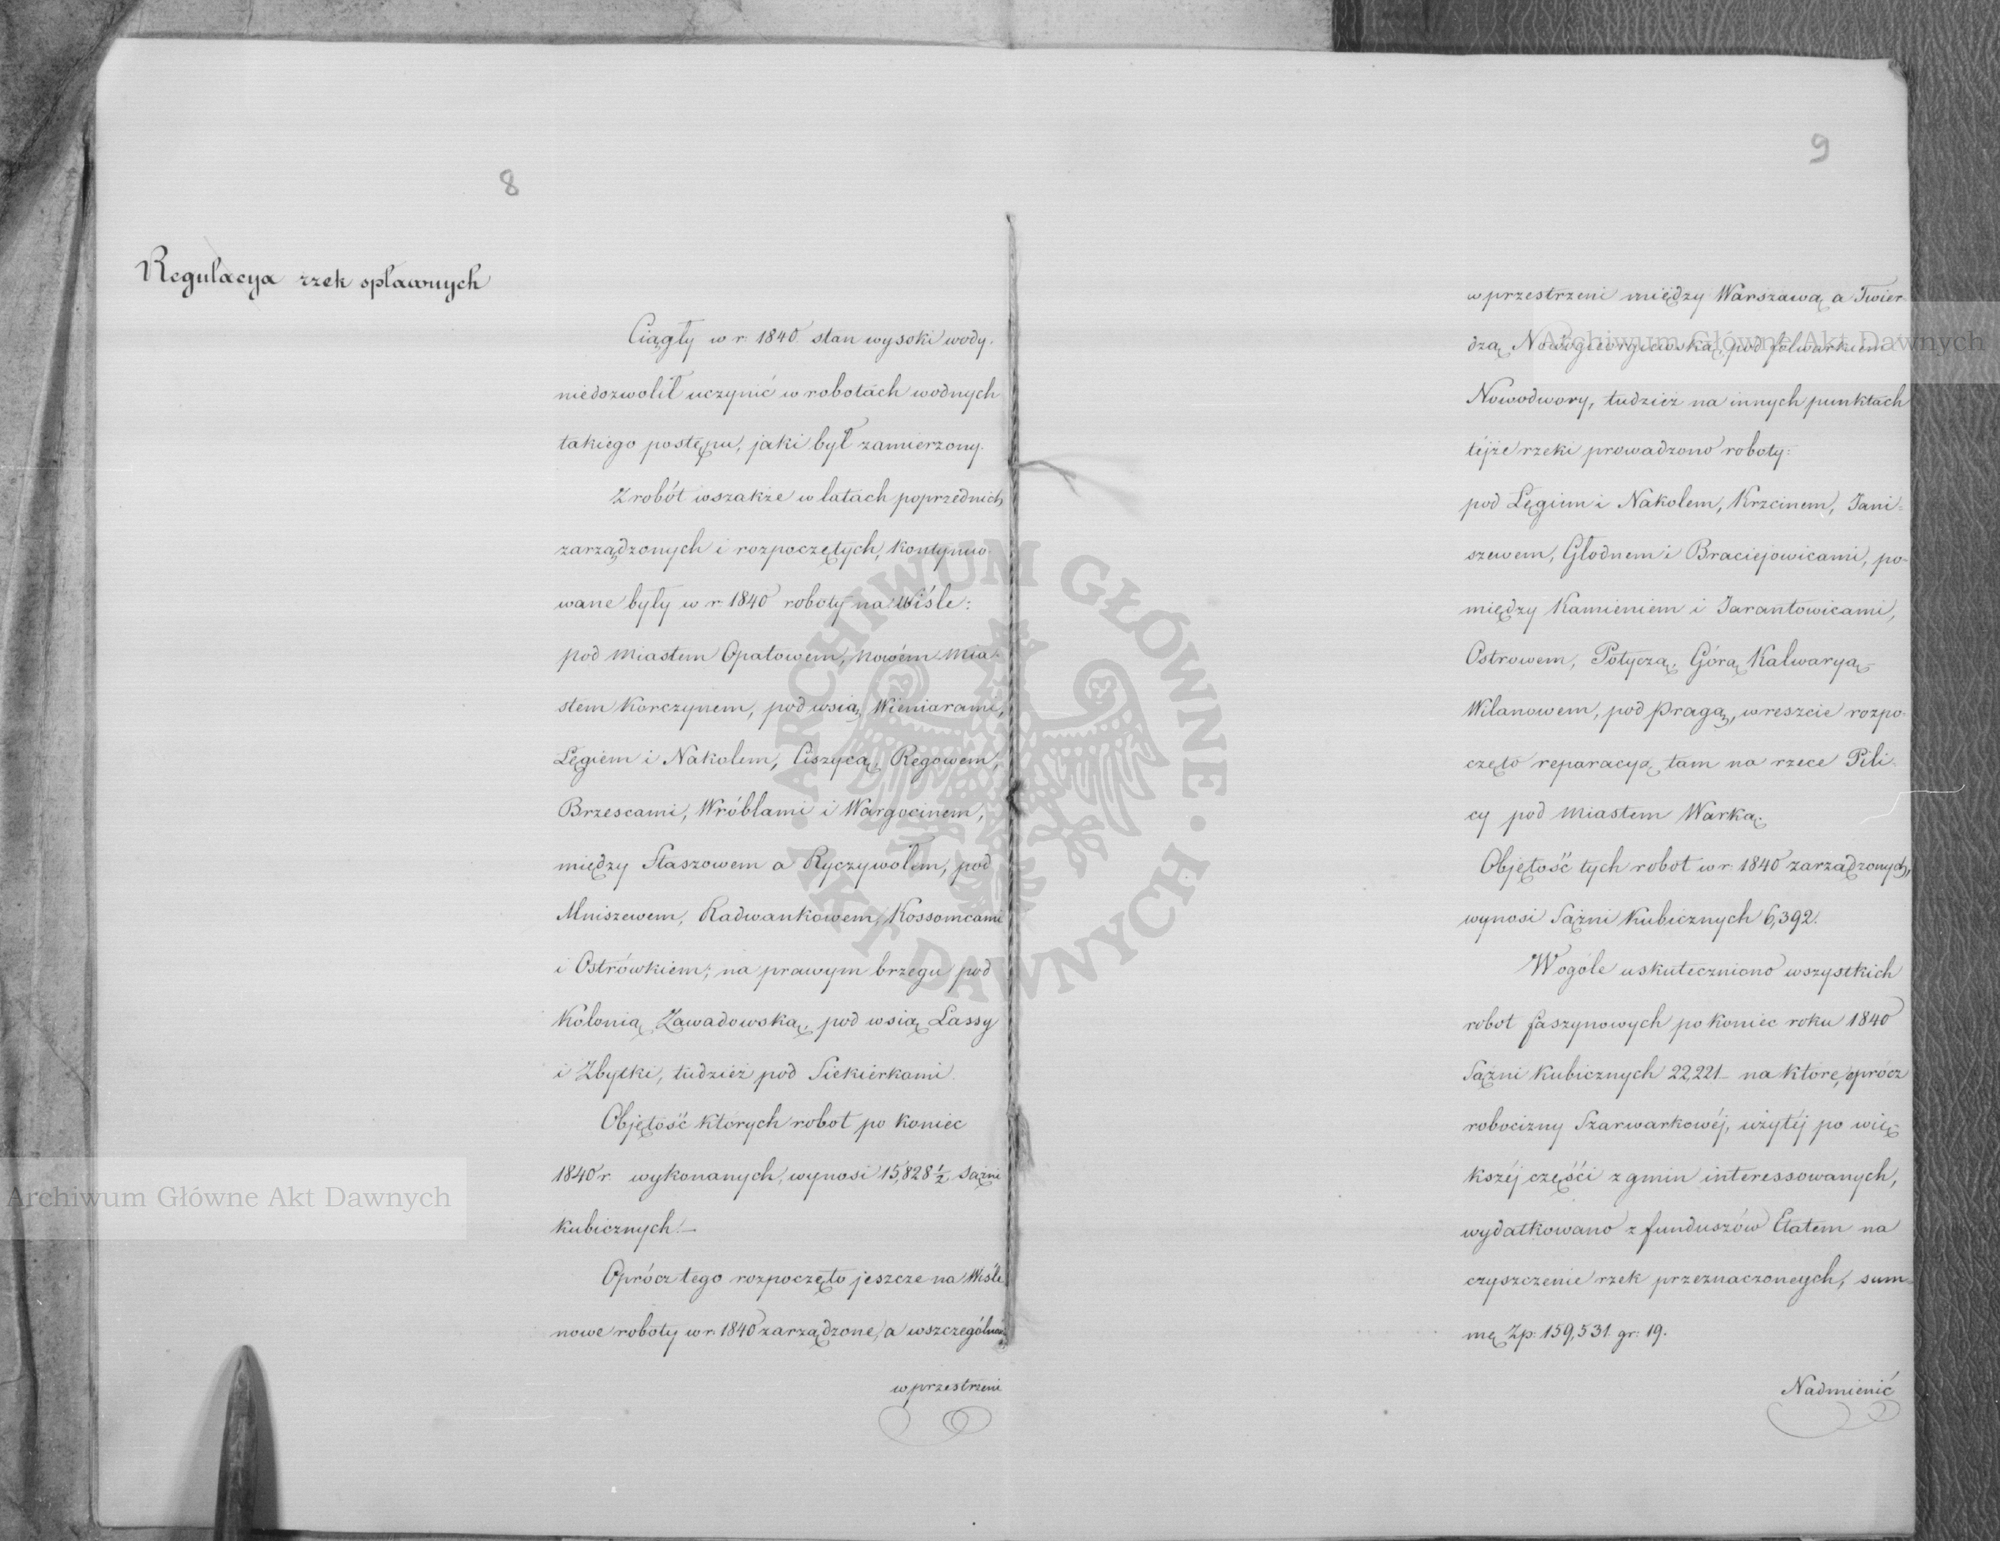 8
Regulacya rzek spławnych
Ciągły w r. 1840 stan wysoki wody
niedozwolił uczynić w robotach wodnych
takiego postępu, jaki był zamierzony.
Z robót wszakże w latach poprzednich
zarządzonych i rozpoczętych, kontynuo-
wane były w r. 1840 roboty na Wiśle:
pod miastem Opatowem, nowém mia-
stem Korczynem, pod wsią Wieniarami,
Łęgiem i Nakolem, Ciszycą, Regowem,
Brzescami, Wróblami i Wargocinem,
między Staszowem a Ryczywołem, pod
Mniszewem, Radwankowem, Kossomcami
i Ostrówkiem; na prawym brzegu pod
Kolonią Zawadowską, pod wsią Lassy
i Zbytki, tudzież pod Siekiérkami.
Objętość których robot po koniec
1840 r. wykonanych, wynosi 15,828 1/2 sążni
kubicznych.—
Oprócz tego rozpoczęto jeszcze na Wiśle
nowe roboty w r. 1840 zarządzone, a wszczególnoś.
w przestrzeni
9
w przestrzeni między Warszawą a Twier-
dzą Nowogieorgiewską, pod folwarkiem
Nowodwory, tudzież na innych punktach
téjże rzeki prowadzono roboty:
pod Łęgiem i Nakolem, Krzcinem, Jani-
szewem, Głodnem i Braciejowicami, po-
między Kamieniem i Jarantowicami,
Ostrowem, Potyczą, Górą Kalwaryą
Wilanowem, pod Pragą, wreszcie rozpo-
częto reparacyą tam na rzece Pili-
cy pod miastem Warką.
Objętość tych robot w r. 1840 zarządzonych,
wynosi Sążni Kubicznych 6,392.
Wogóle uskuteczniono wszystkich
robot faszynowych po koniec roku 1840
Sążni kubicznych 22,221 – na które, oprócz
robocizny Szarwarkowéj, użytéj po wię-
kszéj części z gmin interessowanych,
wydatkowano z funduszów Etatem na
czyszczenie rzek przeznaczoneych, sum-
mę Zp: 159,531. gr: 19.
Nadmienić
Archiwum Główne Akt Dawnych
Archiwum Główne Akt Dawnych
ARCHIWUM GŁÓWNE
AKT DAWNYCH